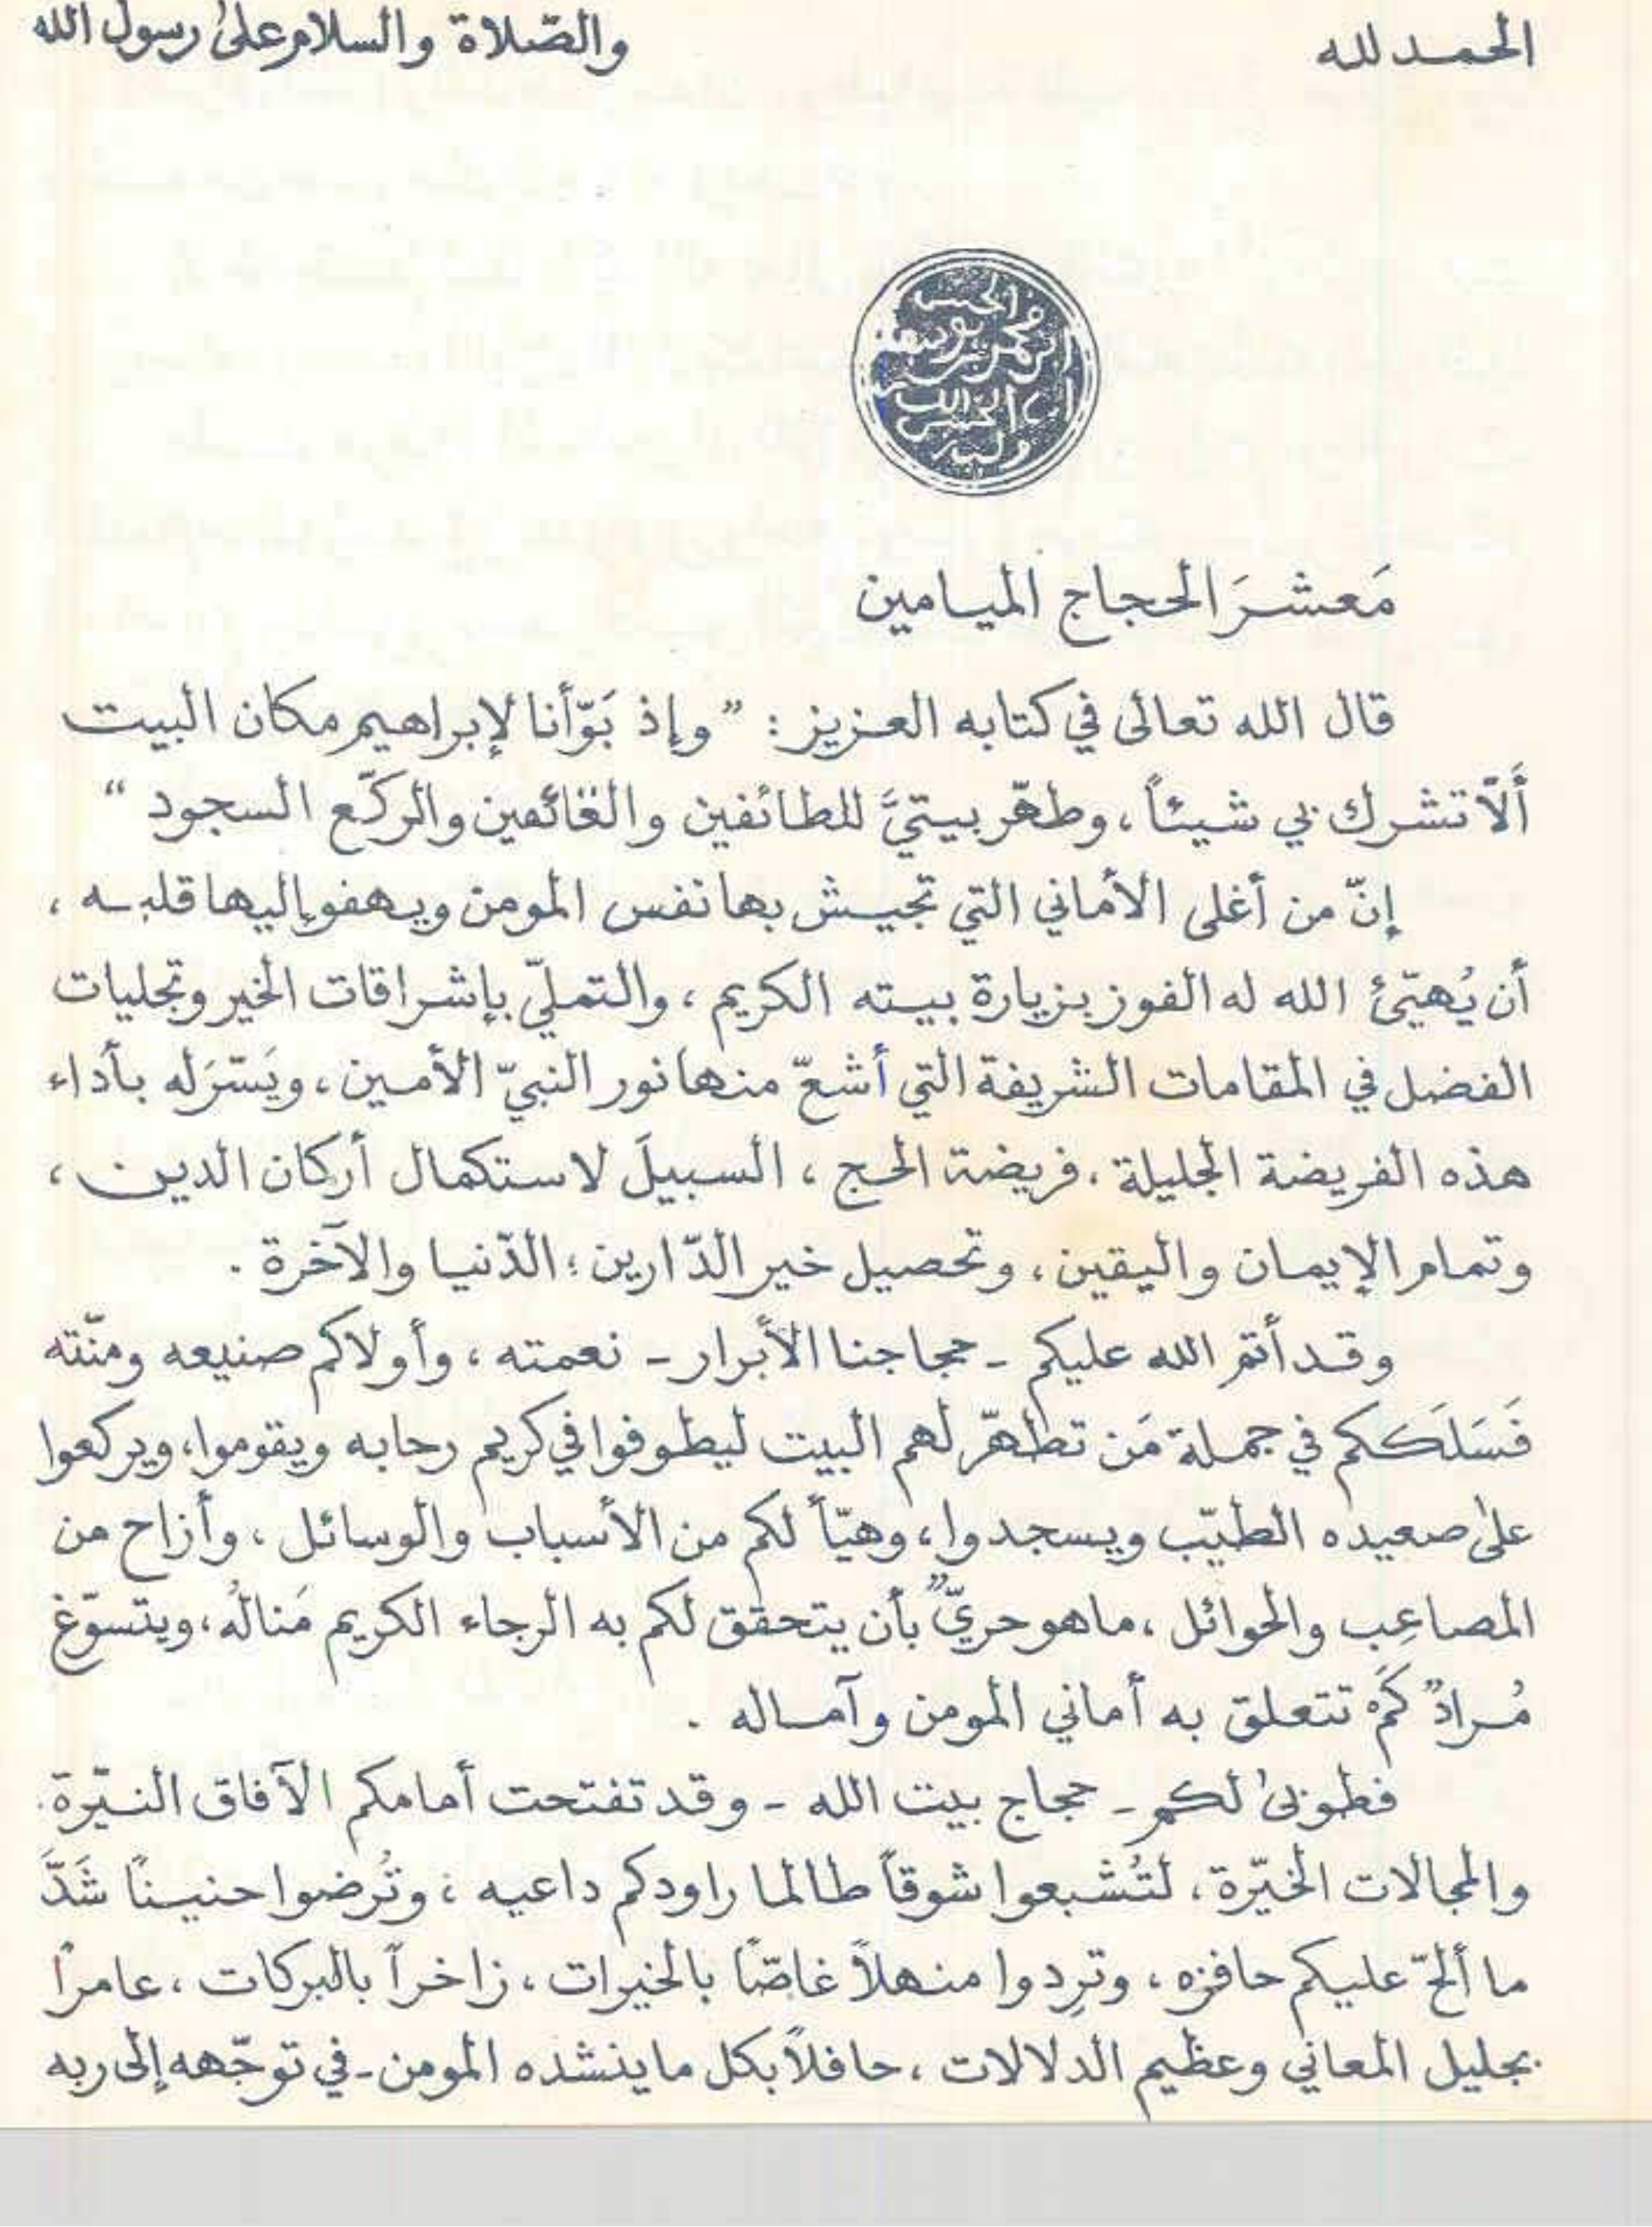 الحمد لله
والصّلاة والسلام على رسول الله
مَعشرَ الحجاج الميامين
قال الله تعالى في كتابه العزيز : " وإذ بَوّأنا لإبراهيم مكان البيت
أَلّا تشرك بي شيئاً ، وطهّر بيتيَّ للطائفين والقائمين والركّع السجود "
إنّ من أغلى الأماني التي تجيش بها نفس المومن ويهفو إليها قلبه ،
أن يُهيّئ الله له الفوز بزيارة بيته الكريم ، والتملّي بإشراقات الخير وتجليات
الفضل في المقامات الشريفة التي أشعّ منها نور النبيّ الأمين ، ويَسّرَ له بأداء
هذه الفريضة الجليلة ، فريضة الحج ، السبيلَ لاستكمال أركان الدين ،
وتمام الإيمان واليقين ، وتحصيل خير الدّارين ؛ الدّنيا والآخرة .
وقد أتم الله عليكم - حجاجنا الأبرار - نعمته ، وأولاكم صنيعه ومنّته
فَسَلَككم في جملة مَن تطهّر لهم البيت ليطوفوا في كريم رحابه ويقوموا ، ويركعوا
على صعيده الطيّب ويسجدوا ، وهيّأ لكم من الأسباب والوسائل ، وأزاح من
المصاعِب والحوائل ، ما هو حريّ بأن يتحقق لكم به الرجاء الكريم مَنالُه ، ويتسوّغ
مُرادٌ كَم تتعلق به أماني المومن وآماله .
فطوبى لكم - حجاج بيت الله - وقد تفتحت أمامكم الآفاق النيّرة
والمجالات الخيّرة ، لتُشبعوا شوقاً طالما راودكم داعيه ؛ وتُرضوا حنيناً شَدَّ
ما ألحّ عليكم حافزه ، وترِدوا منهلاً غاصّاً بالخيرات ، زاخراً بالبركات ، عامراً
بجليل المعاني وعظيم الدلالات ، حافلاً بكل ما ينشده المومن - في توجّهه إلى ربه